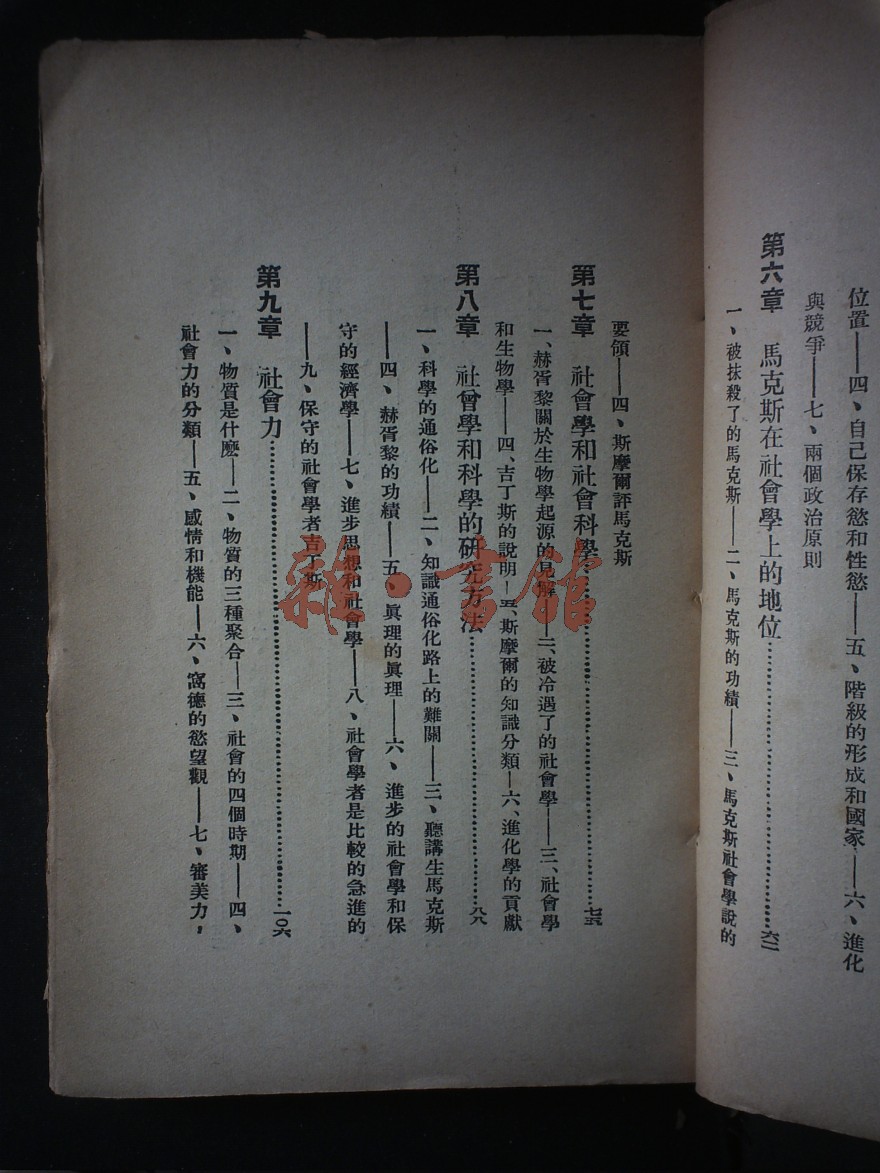 位置——四、自己保存慾和性慾——五、階級的形成和國家——六、進化
與競爭——七、兩個政治原則
第六章 馬克斯在社會學上的地位……六二
一、被抹殺了的馬克斯——二、馬克斯的功績——三、馬克斯社會學說的
要領——四、斯摩爾評馬克斯
第七章 社會學和社會科學……七五
一、赫胥黎關於生物學起源的見解——二、被冷遇了的社會學——三、社會學
和生物學——四、吉丁斯的說明——五、斯摩爾的知識分類——六、進化學的貢獻
第八章 社會學和科學的研究方法……八八
一、科學的通俗化——二、知識通俗化路上的難關——三、聽講生馬克斯
——四、赫胥黎的功績——五、眞理的眞理——六、進步的社會學和保
守的經濟學——七、進步思想和社會學——八、社會學者是比較的急進的
——九、保守的社會學者吉丁斯
第九章 社會力……一〇六
一、物質是什麽——二、物質的三種聚合——三、社會的四個時期——四、
社會力的分類——五、感情和機能——六、窩德的慾望觀——七、審美力，
雜·書館